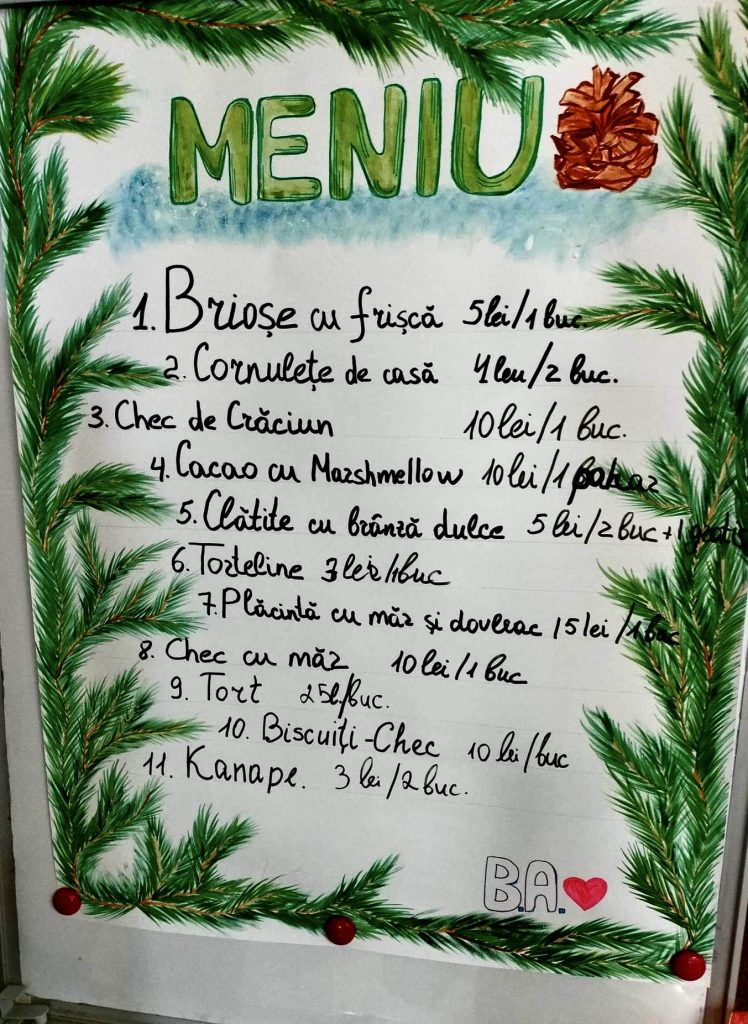 MENIU
1. Brioșe cu frișcă 5 lei/1 buc.
2. Cornulețe de casă 4 leu/2 buc.
3. Chec de Crăciun 10 lei/1 buc.
4. Cacao cu Marshmellow 10 lei/1 pahar
5. Clătite cu brânză dulce 5 lei/2 buc + 1 gratis
6. Torteline 3 lei/1buc
7. Plăcintă cu măr și dovleac 15 lei/1 buc
8. Chec cu măr 10 lei/1 buc
9. Tort 25l/buc.
10. Biscuiți-Chec 10 lei/buc
11. Kanape. 3 lei/2 buc.
B.A.